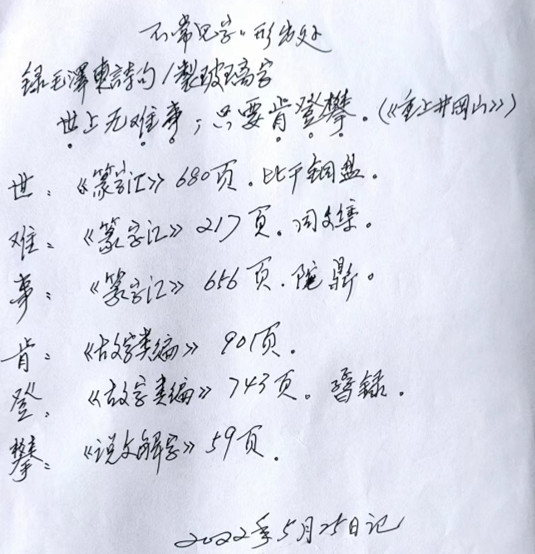 不常见字形出处
録毛澤東詩句/製玻璃字
世上无难事，只要肯登攀。(《重上井冈山》)
世：《篆字汇》680页．比干铜盘．
难：《篆字汇》217页．
事：《篆字汇》656页．鼎。
肯：《古文字类编》901页．
登：《古文字类编》743页．
攀：《说文解字》59页．
2022年5月25日记